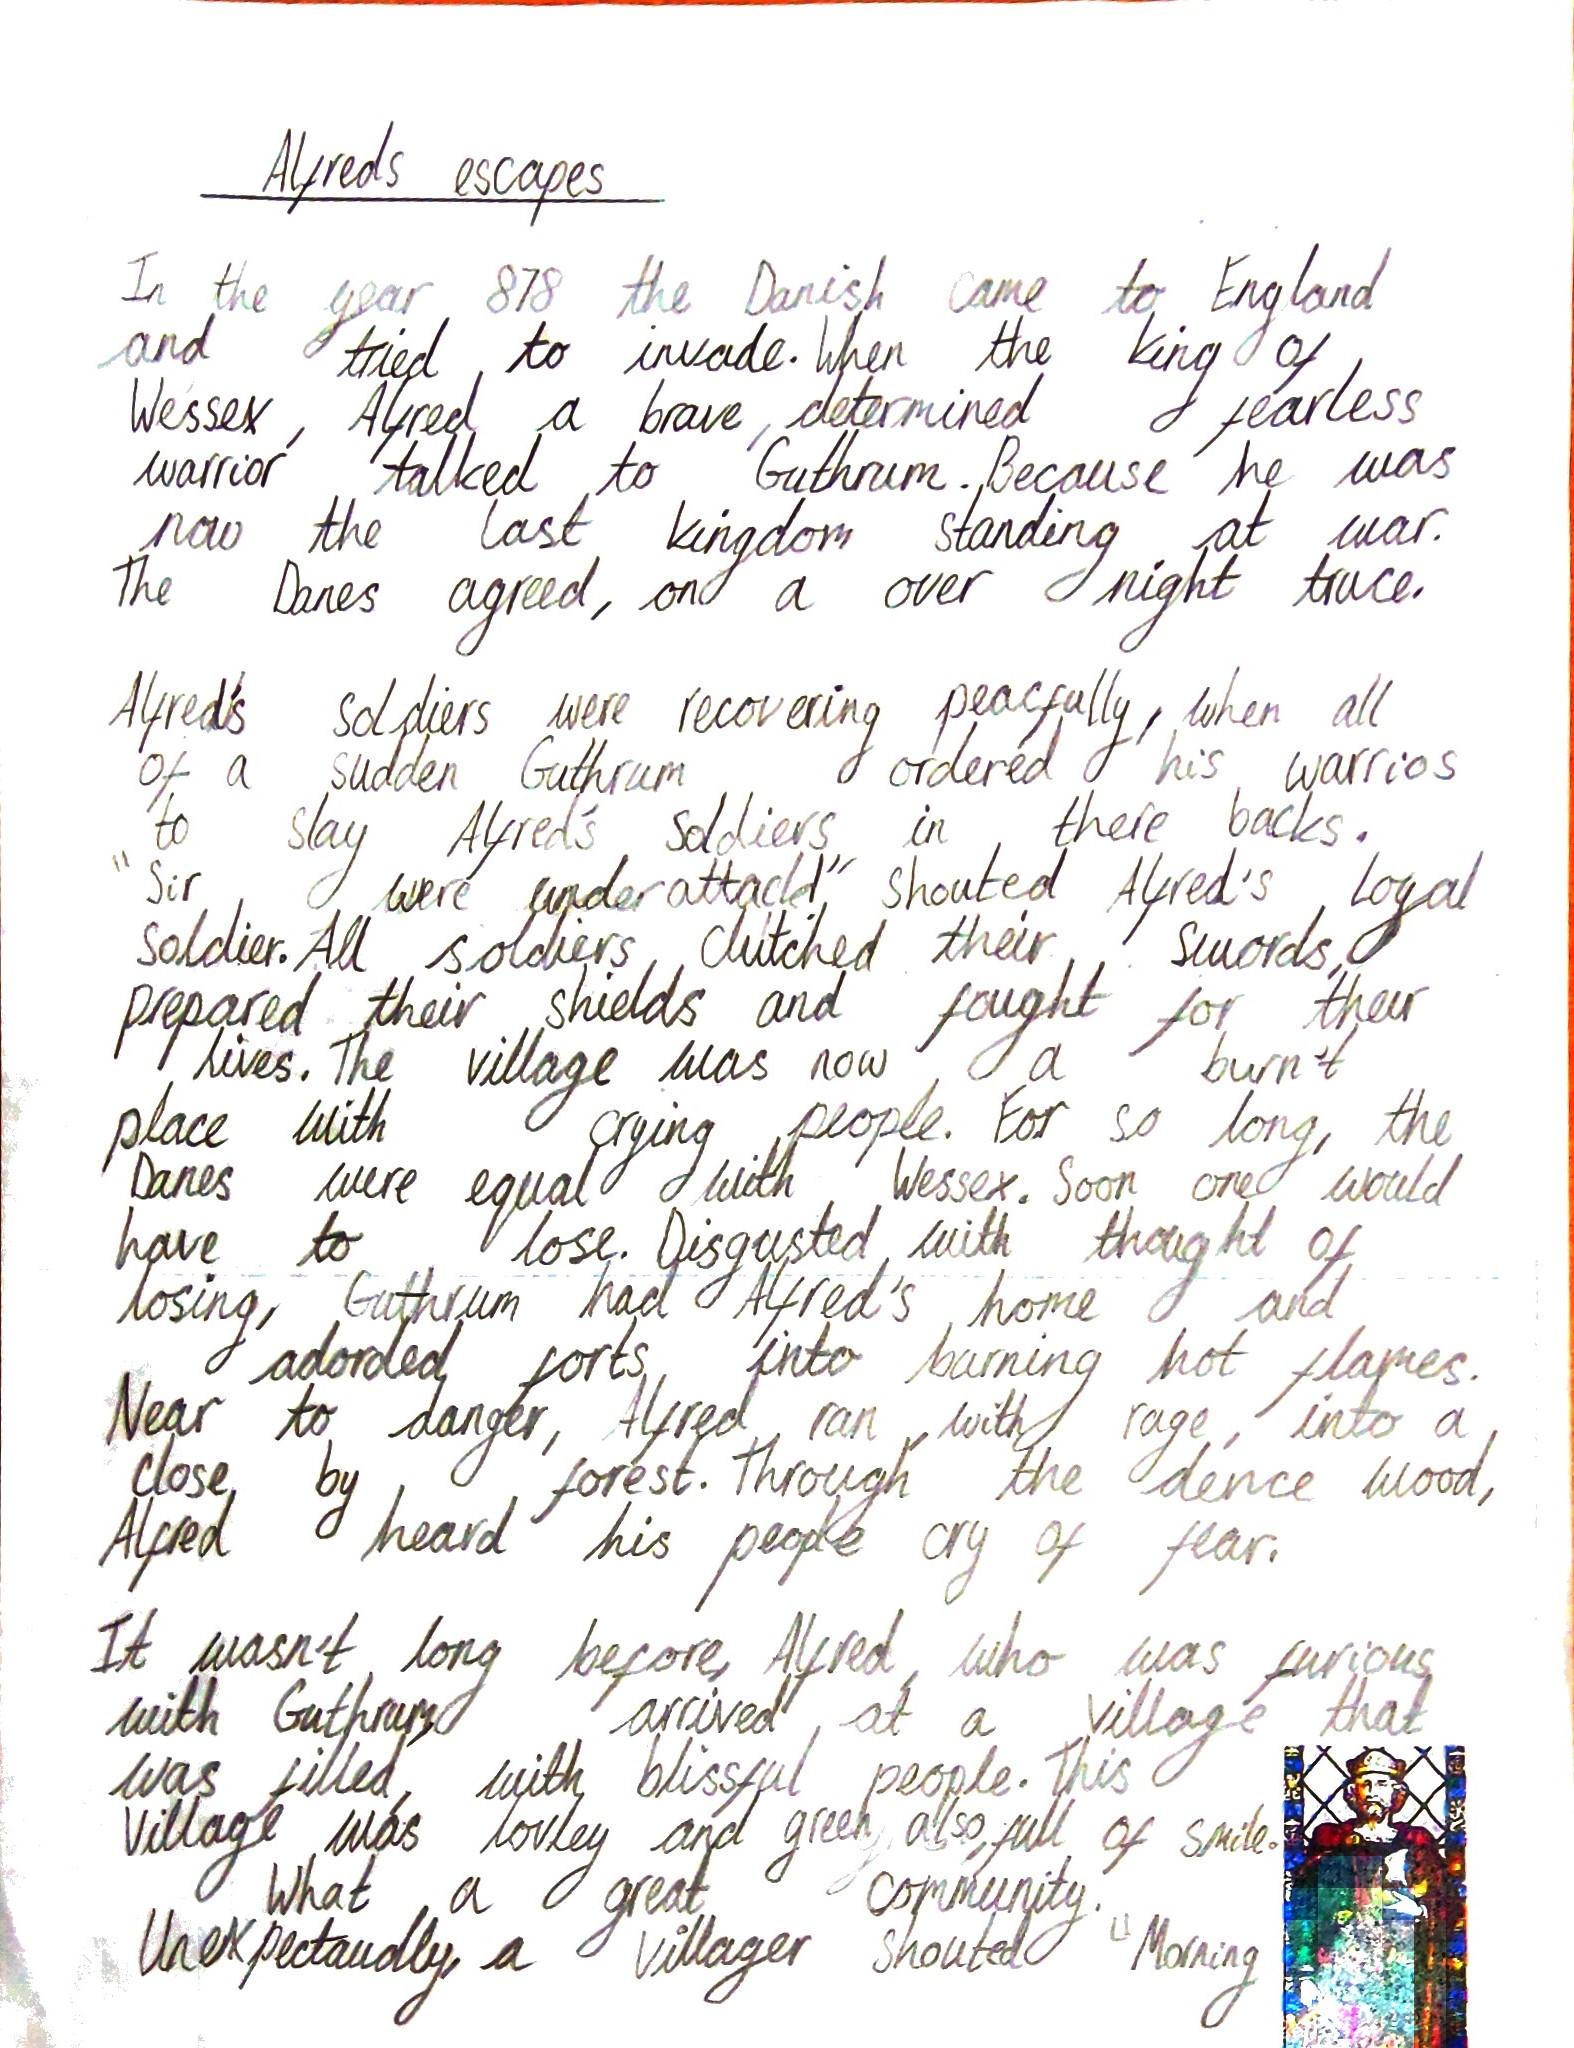 Alfreds escapes
In the year 878 the Danish came to England
and tried to invade. When the king of
Wessex, Alfred a brave, determined fearless
warrior talked to Guthrum. Because he was
now the last kingdom standing at war.
The Danes agreed, on a over night truce.
Alfred's soldiers were recovering peacfully, when all
of a sudden Guthrum ordered his warrios
to slay Alfred's soldiers in there backs.
"Sir, were under attack!" shouted Alfred's loyal
soldier. All soldiers clutched their swords,
prepared their shields and fought for their
lives. The village was now a burn't
place with crying people. For so long, the
Danes were equal with Wessex. Soon one would
have to lose. Disgusted with thought of
losing, Guthrum had Alfred's home and
adorded forts into burning hot flames.
Near to danger, Alfred ran with rage, into a
close by forest. Through the dence wood,
Alfred heard his people cry of fear.
It wasn't long before, Alfred, who was furious
with Guthrum, arrived at a village that
was filled, with blissful people. This
village was lovley and green, also, full of smile.
What a great community.
Unexpectaudly, a villager shouted "Morning